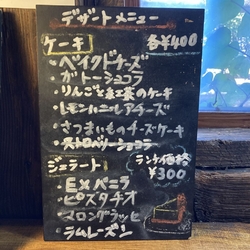 デザートメニュー
ケーキ 各¥400
・ベイクドチーズ
・ガトーショコラ
・りんごと紅茶のケーキ
・レモンハニーレアチーズ
・さつまいものチーズケーキ
・ストロベリーショコラ
ジェラート ランチ価格
¥300
・EXバニラ
・ピスタチオ
・マロングラッセ
・ラムレーズン